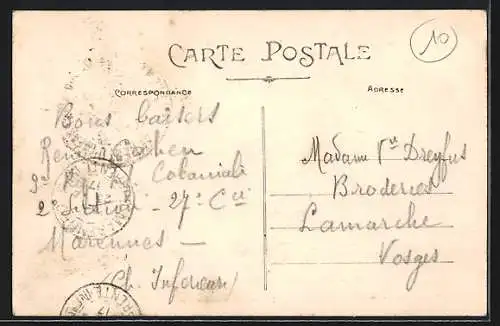 10
CARTE POSTALE
CORRESPONDANCE
ADRESSE
Bons baisers
3e Coloniale
2e Section - 27e Cie
Marennes -
(Ch. Infer
Madame Vve Dreyfus
Broderies
Lamarche
Vosges